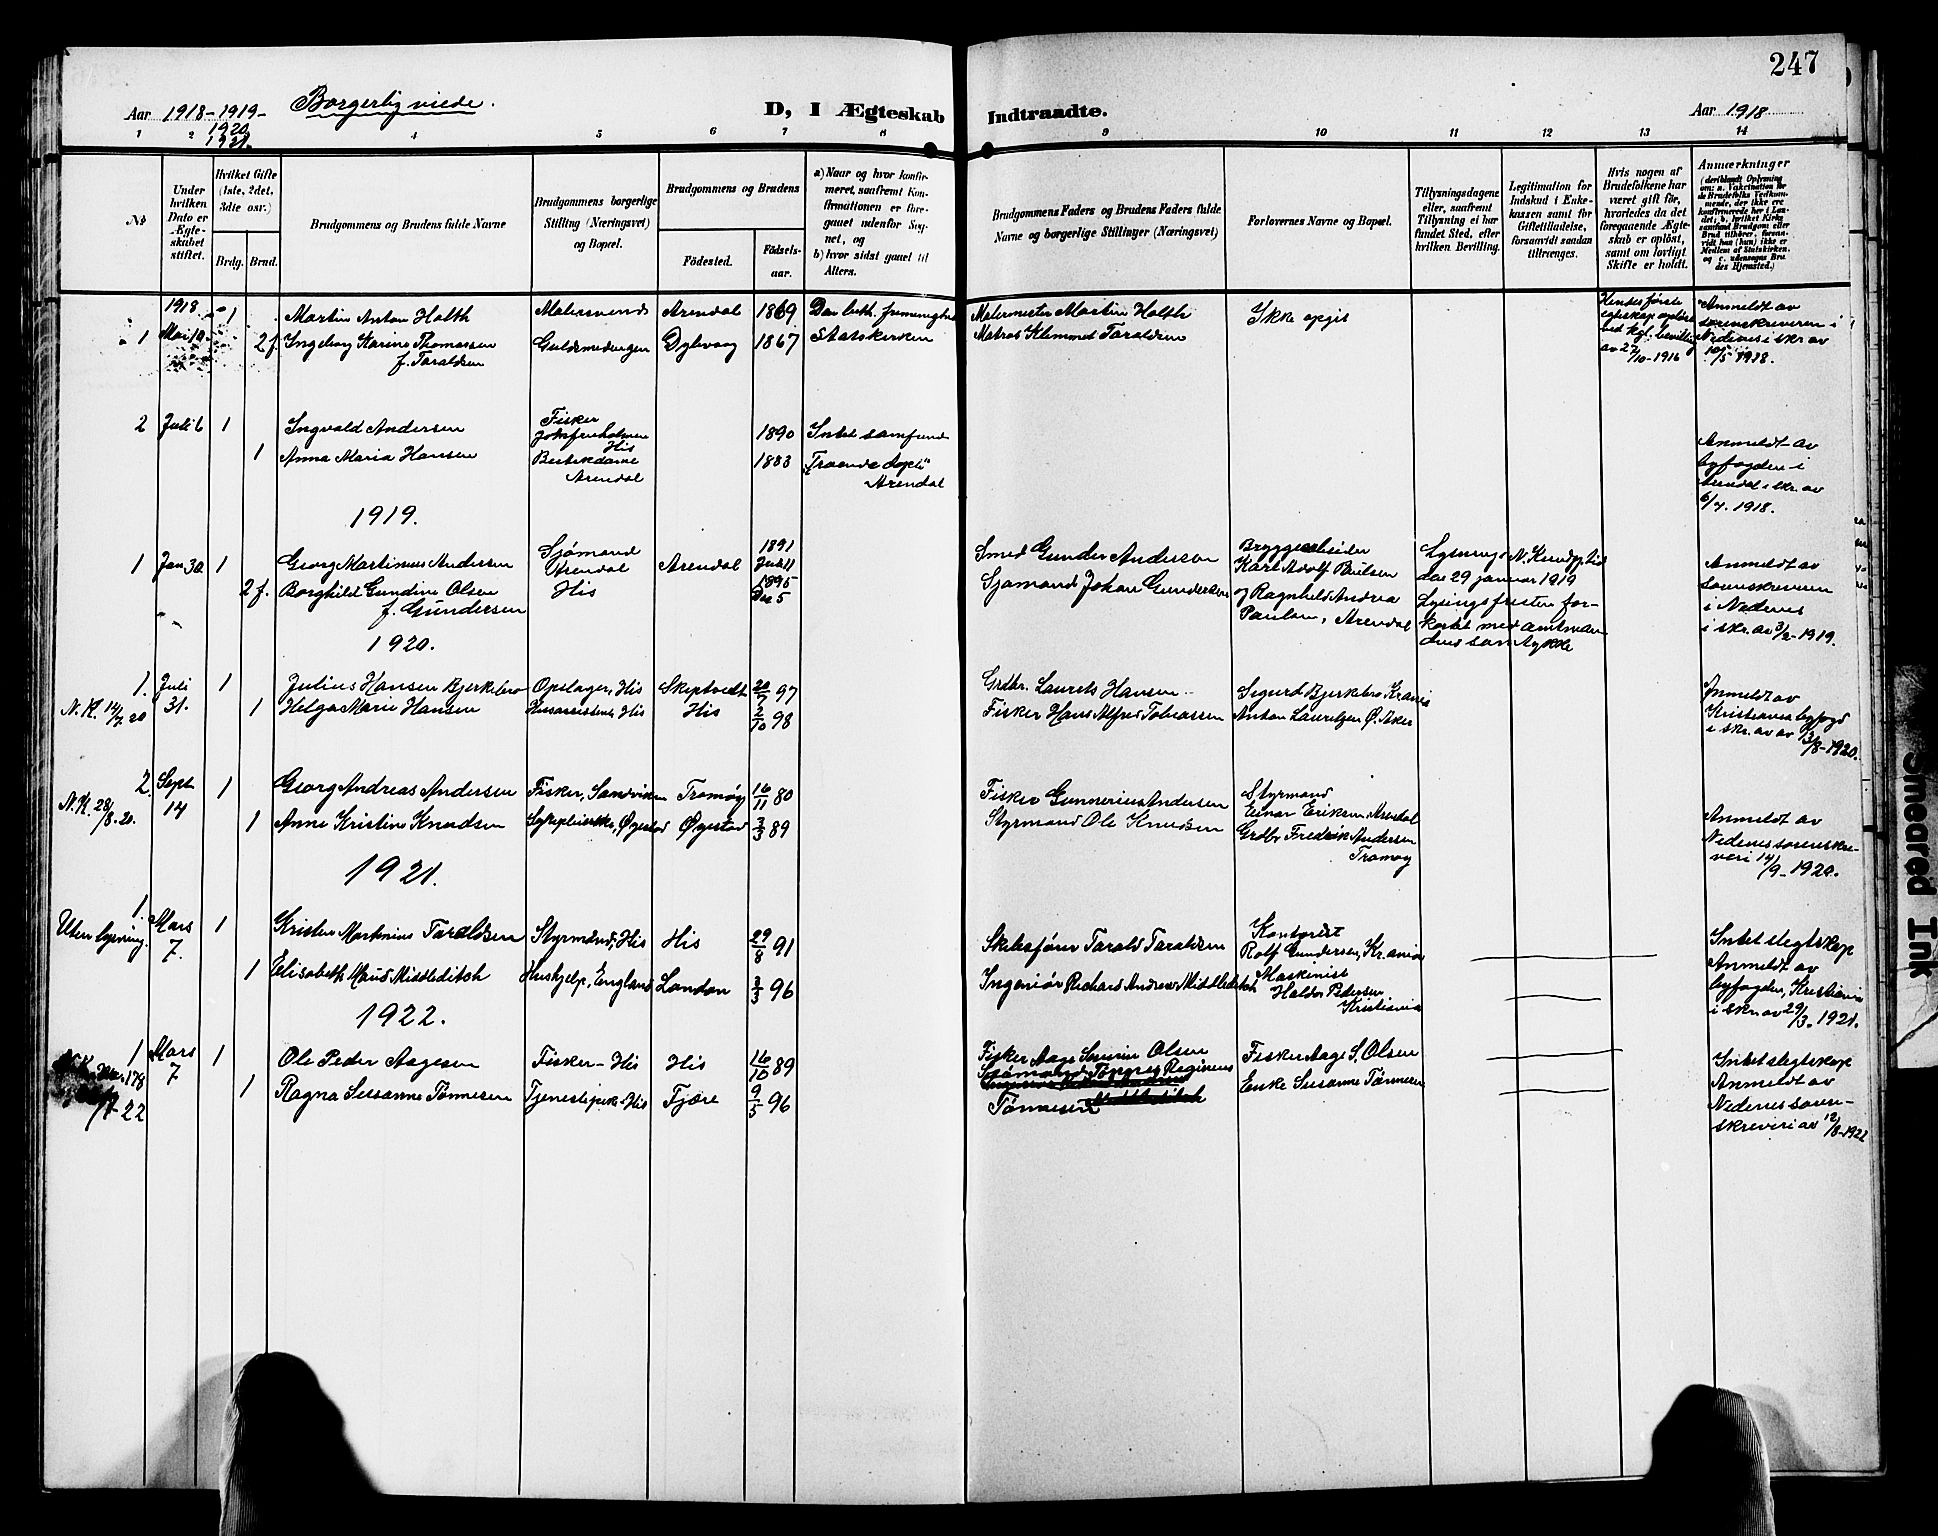 247
Aar 1918-1919-
1920
1921.
Borgerlig viede.
D, I Ægteskab Indtraadte.
Aar 1918
1 2 4 5 6 7 8 9 10 11 12 13 14
No
Under hvilken Dato er Ægteskabet stiftet.
Hvilket Gifte (1ste, 2det, 3die osv.)
Brdg. Brud.
Brudgommens og Brudens fulde Navne
Brudgommens og Brudens borgerlige Stilling (Næringsvei) og Bopæl.
Brudgommens og Brudens
Fødested.
Fødselsaar.
a) Naar og hvor konfirmeret, saafremt Konfirmationen er foregaaet udenfor Sognet, og
b) hvor sidst gaaet til Alters.
Brudgommens Faders og Brudens Faders fulde Navne og borgerlige Stillinger (Næringsvei)
Forlovernes Navne og Bopæl.
Tillysningsdagene eller, saafremt Tillysning ei har fundet Sted, efter hvilken Bevilling.
Legitimation for Indskud i Enkekassen samt for Giftetilladelse, forsaavidt saadan tiltrænges.
Hvis nogen af Brudefolkene har været gift før, hvorledes da det foregaaende Ægteskab er opløst, samt om lovligt Skifte er holdt.
Anmærkninger
1918
1 Martin Anton Holth Malersvend Arendal 1869
Malermester Martin Holth Ikke opgit
1 Mai 10 2 f. Ingeborg Karine Thomassen
f. Taraldsen
Dybvaag 1867 Statskirken
Matros Klemmet Taraldsen
Hendes første egteskap opløst ved kgl. bevilling av 27/10-1916
Anmeldt av sorenskriveren i Nedenes i skr av 10/5 1918.
2 Juli 6 1 Ingvald Andersen Fisker
His
1890 Intet samfund
1 Anna Maria Hansen
Arendal
1883
Arendal
Anmeldt av byfogden i Arendal i skr. av 6/7. 1918.
1919.
1 Jan 30 1 Georg Martinius Andersen Sjømand
Arendal
Arendal 1891
Juli 11
Smed Gunder Anderson Bryggearbeider
Karl Adolf Paulsen
2 f. Borghild Gundine Olsen
f. Gundersen
His
1895
Dec 5
Sjømand Johan Gundersen
og Ragnhild Andrea
Paulsen, Arendal
Lysning
das 29 januar 1919
Lysingsfristen forkortet med amtmandens samtykke
Anmeldt av sorenskriveren i Nedenes i skr. av 3/2-1919.
1920.
1. Juli 31. 1 Julius Hansen Bjerkebro Opslager, His Skiptvedt 20/7 97
Grdbr. Laurits Hansen Sigurd Bjerkebro Krania
N. K. 14/7. 20 1 Helga Marie Hansen His 2/10 98
Fisker Hans Alfred Tobiassen Anton Lauritzen Ø. Aker
Anmeldt av Kristiania byfogd i skr. av av 13/8-1920.
2. Sept 14 1 Georg Andreas Andersen Fisker, Sandviken Tromøy 16/11 80
Fisker Gunnerius Andersen Styrmand
Einar Eriksen, Arendal
N. K. 28/8-20. 1 Anne Kristine Knudsen Sykepleierske, Øyestad Øyestad 3/3 89
Styrmand Ole Knudsen Grdbr Fredrik Andersen
Tromøy
Anmeldt av Nedenes sorenskriveri 14/9-1920.
1921.
1. Mars 7. 1 Kristen Martinius Taraldsen Styrmand, His His 29/8 91
Uten lysning.
Skibsfører Tarald Taraldsen Kontorist
Rolf Gundersen, Krania
1 Elisabeth Maud Middleditch Hushjelp, England London 2/3 96
Ingeniør Richard Andrew Middleditch Maskinist
Haldor Pedersen
Kristiania
Intet slegtskap
Anmeldt av byfogden, Kristiania i skr. av 29/3. 1921.
1922.
1 Mars 7 1 Ole Peder Aagesen Fisker - His His 16/10 89
Fisker Aage Severin Olsen Fisker Aage S. Olsen
22
1 Ragna Susanne Tønnesen Tjenestepike-His Fjære 9/5 96
Sjømand Tønnes Reginius
Tønnesen
Enke Susanne Tønnesen
Intet slegtskap
Anmeldt av Nedenes sorenskriveri av 12/8-1922
Smeared Ink